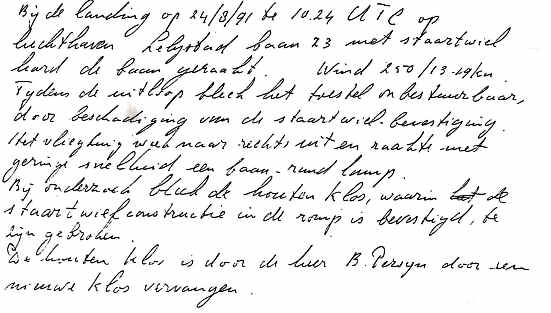 Bij de landing op 24/8/91 te 10.24 UTC op
luchthaven Lelystad baan 23 met staartwiel
hard de baan geraakt. Wind 250/13-19kn.
Tijdens de uitloop bleek het toestel onbestuurbaar,
door beschadiging van de staartwiel-bevestiging.
Het vliegtuig week naar rechts uit en raakte met
geringe snelheid een baan-rand lamp.
Bij onderzoek bleek de houten klos, waarin het de
staartwielconstructie in de romp is bevestigd, te
zijn gebroken.
De houten klos is door de heer B. Persyn door een
nieuwe klos vervangen.